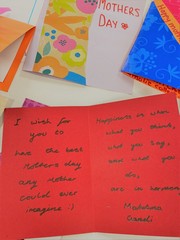 MOTHERS'
DAY
I wish for
you to
has the best
Mothers day
any mother
could ever
imagine :)
Happiness is when
what you think,
what you say,
and what you
do,
are in harmony
Mahatma
Gandi